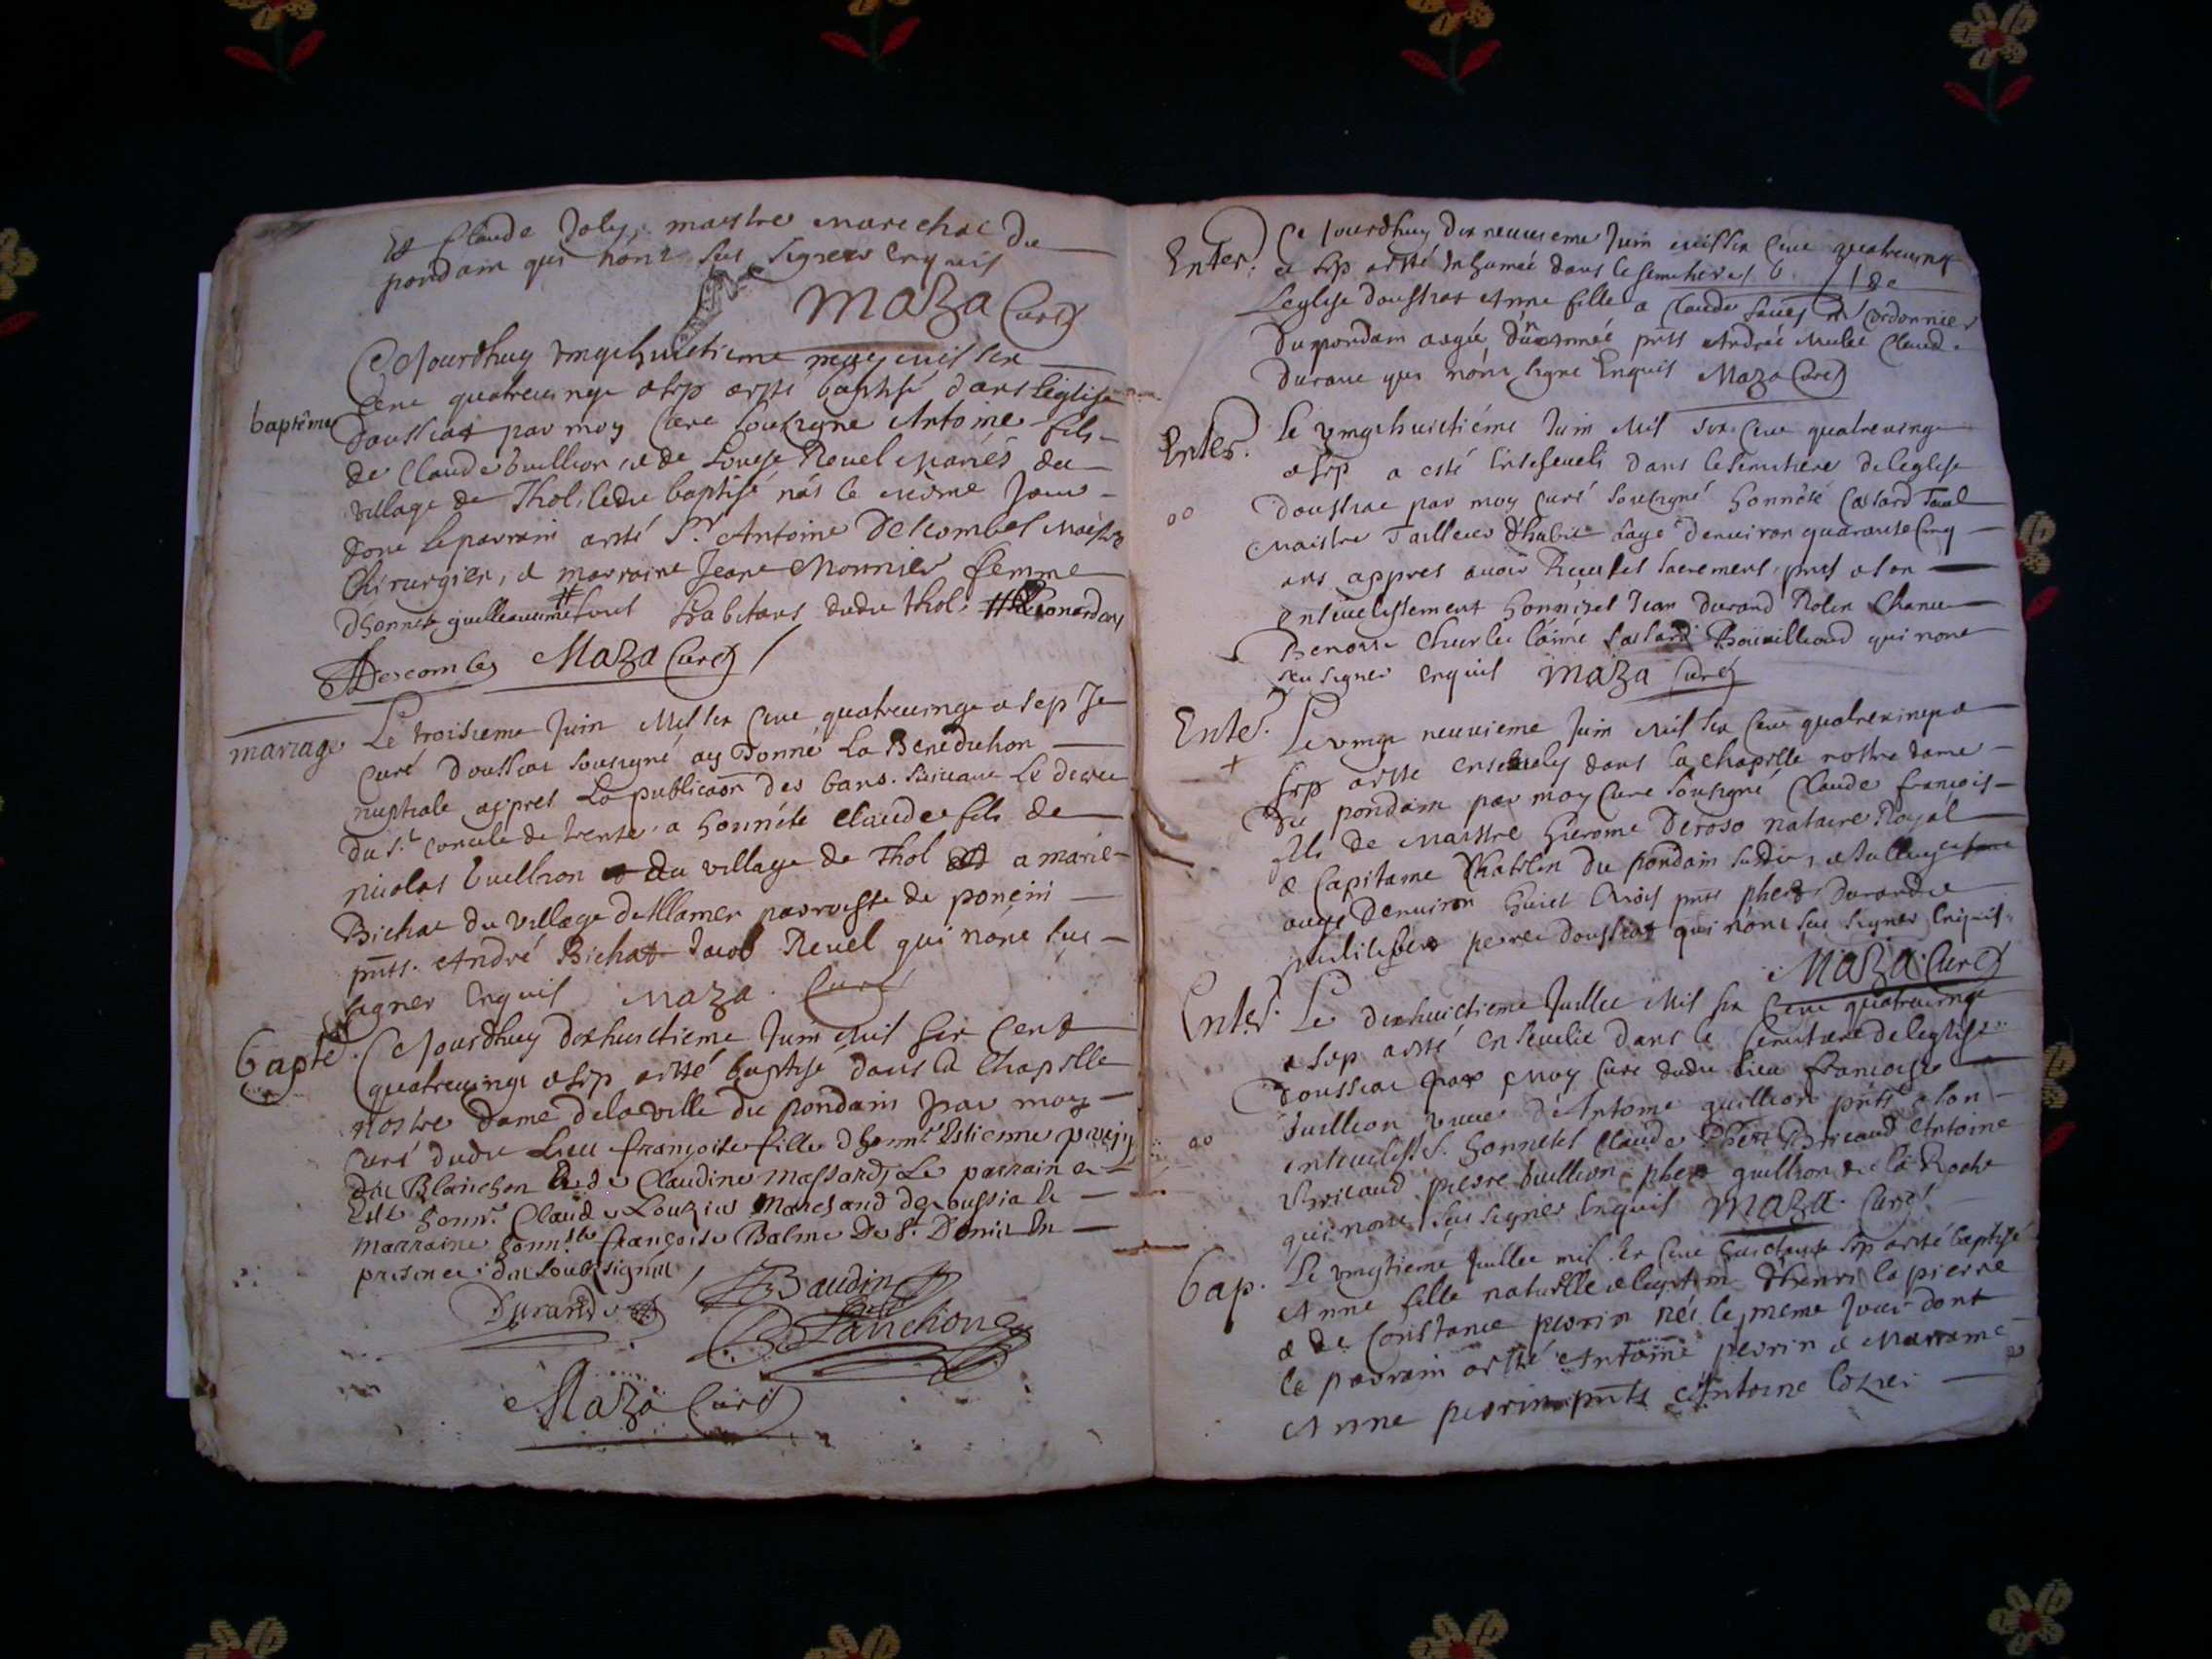 Et Claude Joly, maistre marechal du
pondain qui nont sus signer enquis
Maza Curé
baptême
Ce Jourdhuy vingthuictieme may mil six
cent quatrevingt e sep a esté baptisé dans leglise
doussiat par moy Curé soubsigné Antoine fils
de Claude Vuillion, e de Louyse Revel mariés du
village de Thol, ledit baptisé nas le mesme jour
dont le parrain a esté Sr. Antoine Descombes maistre
Chirurgien, e marraine Jeane Monnier femme
dhonnete guilleaume # habitans dudit thol. # Leonard
ADescombes Maza Curé
mariage
Le troisieme Juin mil six cent quatrevingt e sep Je
Curé doussiat soubsigné ay donné La Benediction
nuptiale appres La publicaon des bans suivant Le decret
du St. concile de trente a honnéte Claude fils de
nicolas Vuillion du village de Thol a marie
Bichat du village de parroisse de poncin
pnts. André Bichat Jacob Revel qui nont sus
signer enquis Maza Curé
Bapte.
Ce Jourdhuy dixhuictieme Juin mil six cent
quatrevingt e sep a esté baptisé dans la Chapelle
nostre dame de la ville du pondain par moy
Curé dudit Lieu françoise fille dhonnte Estienne
Blanchon e de Claudine Massard, Le parrain a
Esté honn. Claude Marchand de le
marraine honnste françoise Balme De St. Denis En
presence des soubsignés
Durand Baudin
Blanchon
Maza Curé
Enter.
Ce Jourdhuy dix neuvieme Juin mil six cent quatrevingt
e sep a esté inhumée dans le semetiere de
Leglise doussiat Anne fille a Claude Cordonnier
du pondain aagée dun année pnts André Mulet Claude
Durand qui nont signé enquis Maza Curé
Enter.
Le vingthuictiéme Juin mil six cent quatrevingt
e sep a esté enseveli dans le semetiere de leglise
doussiat par moy Curé soubsigné honnéte
maistre Tailleur dhabit aagé denviron quarante cinq
ans appres avoir Receu les sacrements, pnts a son
ensevelissement Jean Durand
qui nont
seu signer enquis Maza Curé
Enter.
Le vingt neuvieme Juin mil six cent quatrevingt e
sep a esté ensevely dans la chapelle nostre dame
du pondain par moy Curé soubsigné Claude françois
fils de maistre hierome Deroso notaire Royal
e Capitaine Chatelin du pondain susdit,
aagé denviron huict mois pnts Durand
doussiat qui nont seu signer enquis
Maza Curé
Enter.
Le dixhuictieme Juillet mil six cent quatrevingt
e sep a esté ensevelie dans le semetiere de leglise
doussiat par moy Curé dudit lieu françoise
Vuillion veuve dAntoine guillion pnts a son
ensevelisst. honnetes Claude Bricaud Antoine
Bricaud pierre Vuillion guillion de la Roche
qui nont seu signer enquis Maza Curé
Bap.
Le vingtieme Juillet mil six cent huictante sep a esté baptisé
Anne fille naturelle e legitime dhenri la pierre
e de Constance perrin née le meme jour dont
le parrain a esté Antoine perrin e Marraine
Anne perrin pnts Antoine